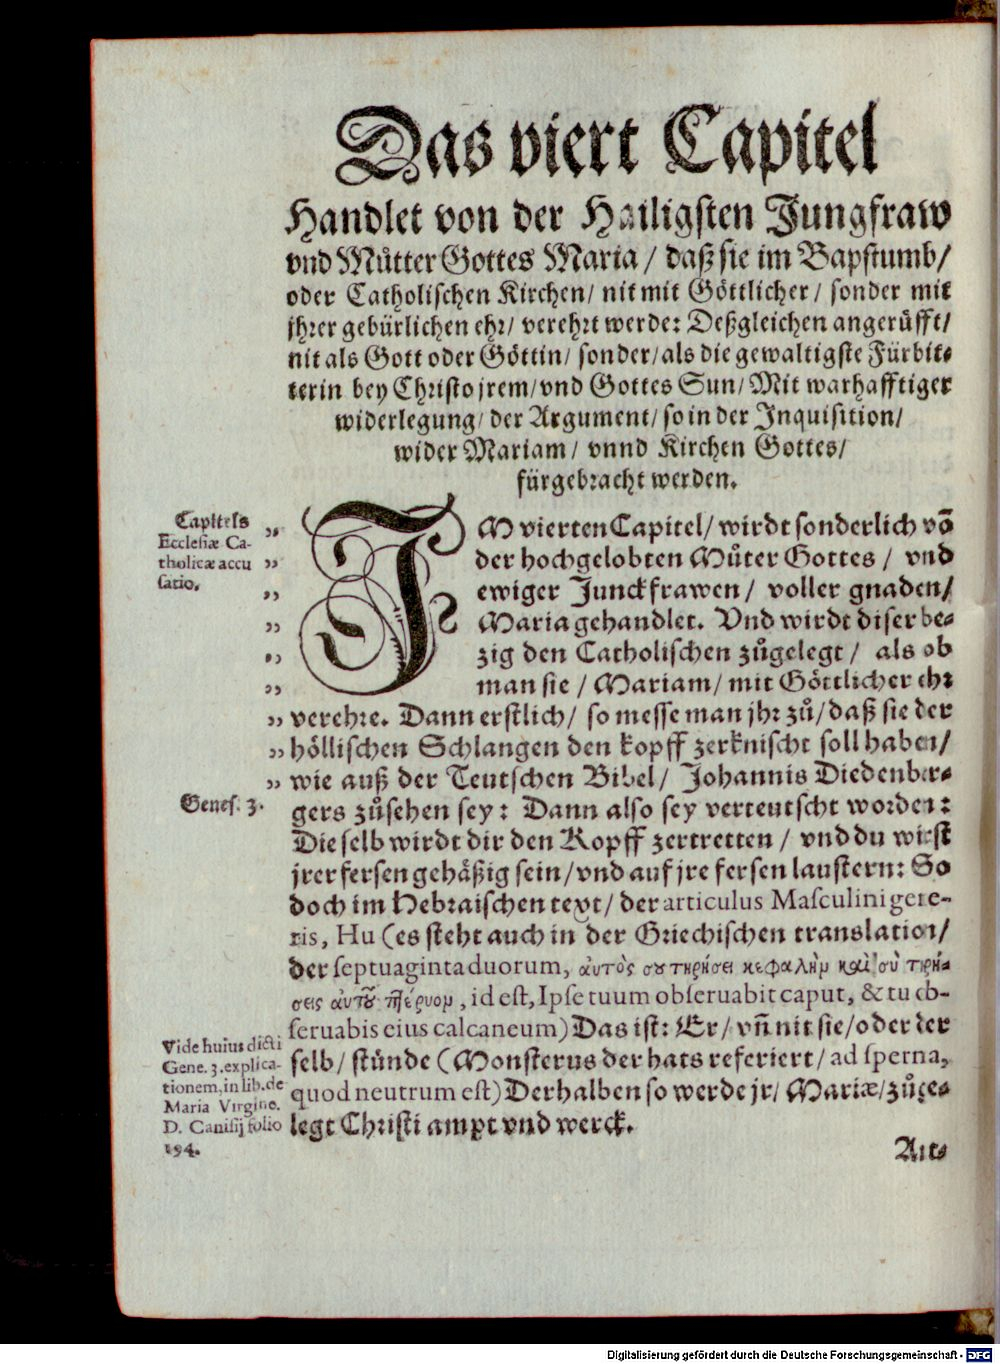 Das viert Capitel
Handlet von der Hailigsten Jungfraw
vnd Můtter Gottes Maria / daß sie im Bapstumb/
oder Catholischen Kirchen/ nit mit Göttlicher / sonder mit
jhrer gebürlichen ehr/ verehrt werde: Deßgleichen angerüfft/
nit als Gott oder Göttin/ sonder/ als die gewaltigste Fürbit-
terin bey Christo jrem/ vnd Gottes Sun/ Mit warhafftiger
widerlegung/ der Argument/ so in der Inquisition/
wider Mariam/ vnnd Kirchen Gottes/
fürgebracht werden.
Capitels
Ecclesiæ Ca-
tholicæ accu
satio.
IM vierten Capitel/ wirdt sonderlich võ
der hochgelobten Můter Gottes / vnd
ewiger Junckfrawen / voller gnaden/
Maria gehandlet. Vnd wirdt diser be-
zig den Catholischen zůgelegt / als ob
man sie / Mariam/ mit Göttlicher ehr
„ verehre. Dann erstlich/ so messe man jhr zů/ daß sie der
„ höllischen Schlangen den kopff zerknischt soll haben/
„ wie auß der Teutschen Bibel/ Johannis Diedenber-
Genes. 3.
gers zůsehen sey: Dann also sey verteutscht worden:
Die selb wirdt dir den Kopff zertretten / vnd du wirst
jrer fersen gehäßig sein/ vnd auf jre fersen laustern: So
doch im Hebraischen text/ der articulus Masculini gene-
ris, Hu (es steht auch in der Griechischen translation/
der septuaginta duorum, αὐτὸς σου τηρήσει κεφαλὴν καὶ σὺ τηρή-
σεις αὐτοῦ πτέρναν, id est, Ipse tuum obseruabit caput, & tu ob-
seruabis eius calcaneum) Das ist: Er/ vñ nit sie/ oder der
selb/ stünde (Monsterus der hats referiert/ ad sperna,
quod neutrum est) Derhalben so werde jr/ Mariæ/ zůge-
legt Christi ampt vnd werck.
Vide huius dicti
Gene. 3. explica-
tionem, in lib. de
Maria Virgine.
D. Canisij folio
194.
Art-
Digitalisierung gefördert durch die Deutsche Forschungsgemeinschaft - DFG